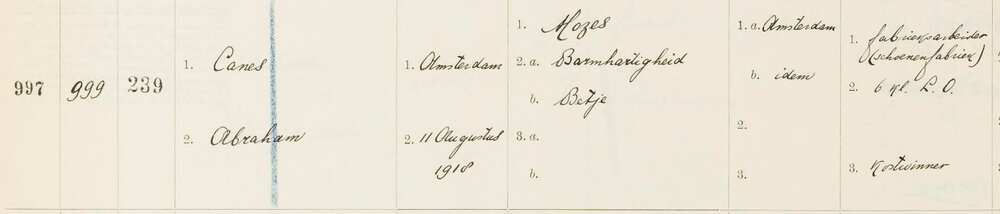 997 999 239
1. Canes
2. Abraham
1. Amsterdam
2. 11 Augustus
1918
1. Mozes
2. a. Barmhartigheid
b. Betje
3. a.
b.
1. a. Amsterdam
b. idem
2.
3.
1. fabrieksarbeider
(schoenenfabriek)
2. 6 kl. L. O.
3. Kostwinner